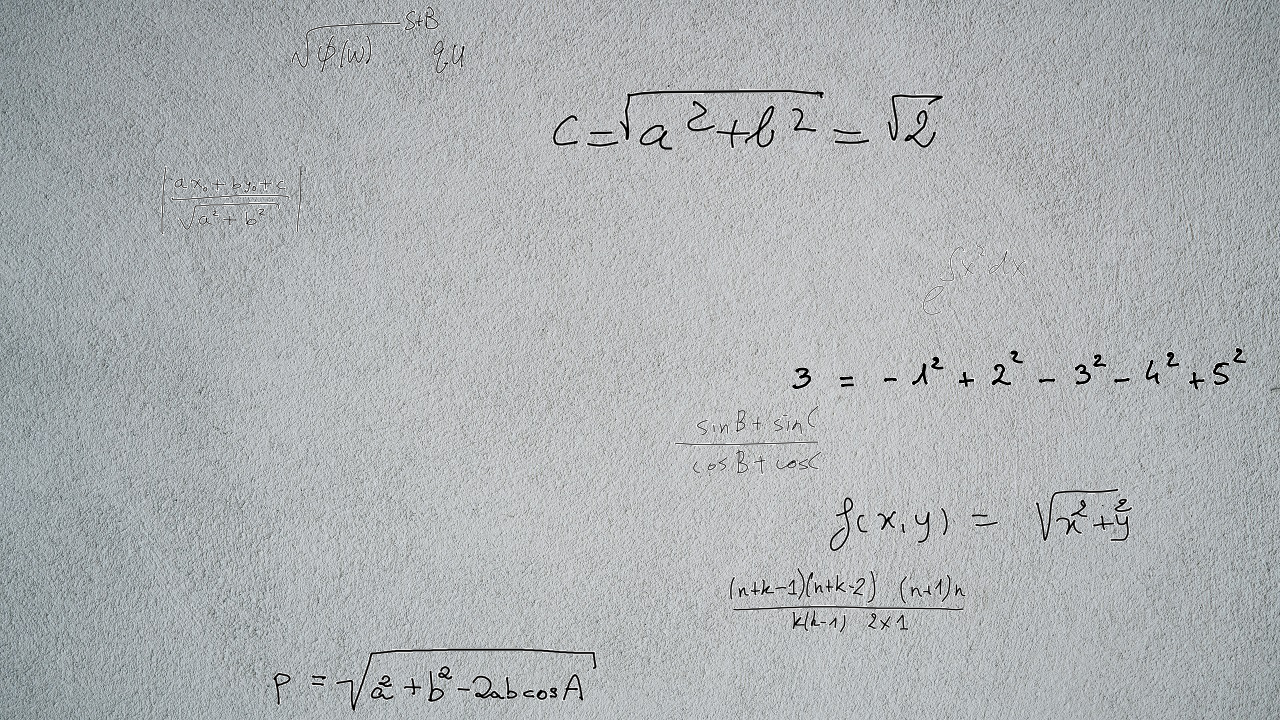 √φ(w) S+B qu
c = √a² + b² = √2
|ax₀ + by₀ + c / √a² + b²|
e^∫x²dx
3 = - 1² + 2² - 3² - 4² + 5²
sinB + sinC
cosB + cosC
f(x, y) = √x² + y²
(n+k-1)(n+k-2) (n+1)n
k(k-1) 2×1
p = √a² + b² - 2ab cos A